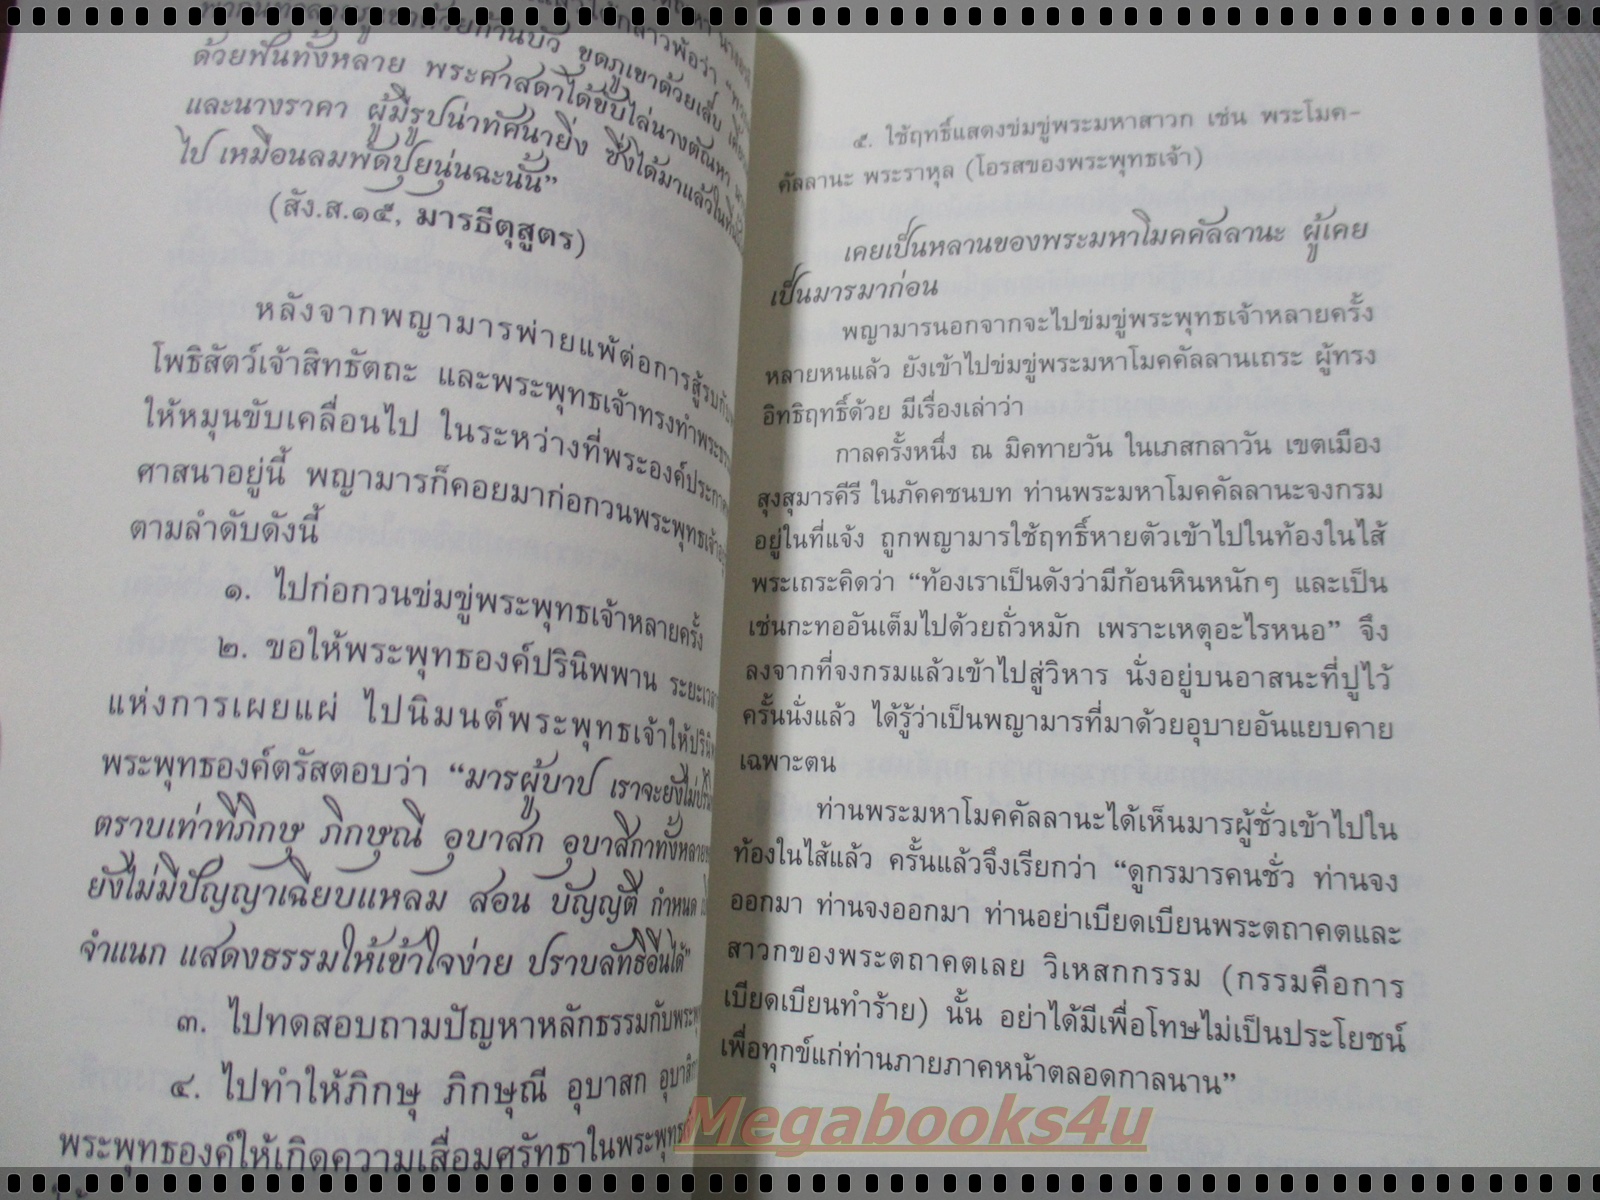 ด้วยฟันทั้งหลาย พระศาสดาได้ขับไล่นางตัณหา
และนางราคา ผู้มีรูปน่าทัศนายิ่ง ซึ่งได้มาแล้วในที่นั้น
ไป เหมือนลมพัดปุยนุ่นฉะนั้น”
(สัง.ส.๑๕, มารธีตุสูตร)
หลังจากพญามารพ่ายแพ้ต่อการสู้รบกับ
โพธิสัตว์เจ้าสิทธัตถะ และพระพุทธเจ้าทรงทำพระธรรม
ให้หมุนขับเคลื่อนไป ในระหว่างที่พระองค์ประกาศ
ศาสนาอยู่นี้ พญามารก็คอยมาก่อกวนพระพุทธเจ้า
ตามลำดับดังนี้
๑. ไปก่อกวนข่มขู่พระพุทธเจ้าหลายครั้ง
๒. ขอให้พระพุทธองค์ปรินิพพาน ระยะเวลา
แห่งการเผยแผ่ ไปนิมนต์พระพุทธเจ้าให้
พระพุทธองค์ตรัสตอบว่า “มารผู้บาป เราจะยังไม่
ตราบเท่าที่ภิกษุ ภิกษุณี อุบาสก อุบาสิกาทั้งหลาย
ยังไม่มีปัญญาเฉียบแหลม สอน บัญญัติ กำหนด
จำแนก แสดงธรรมให้เข้าใจง่าย ปราบลัทธิอื่นได้”
๓. ไปทดสอบถามปัญหาหลักธรรมกับ
๔. ไปทำให้ภิกษุ ภิกษุณี อุบาสก
พระพุทธองค์ให้เกิดความเสื่อมศรัทธาใน
๕. ใช้ฤทธิ์แสดงข่มขู่พระมหาสาวก เช่น พระโมค-
คัลลานะ พระราหุล (โอรสของพระพุทธเจ้า)
เคยเป็นหลานของพระมหาโมคคัลลานะ ผู้เคย
เป็นมารมาก่อน
พญามารนอกจากจะไปข่มขู่พระพุทธเจ้าหลายครั้ง
หลายหนแล้ว ยังเข้าไปข่มขู่พระมหาโมคคัลลานเถระ ผู้ทรง
อิทธิฤทธิ์ด้วย มีเรื่องเล่าว่า
กาลครั้งหนึ่ง ณ มิคทายวัน ในเภสกลาวัน เขตเมือง
สุงสุมารคีรี ในภัคคชนบท ท่านพระมหาโมคคัลลานะจงกรม
อยู่ในที่แจ้ง ถูกพญามารใช้ฤทธิ์หายตัวเข้าไปในท้องในไส้
พระเถระคิดว่า “ท้องเราเป็นดังว่ามีก้อนหินหนักๆ และเป็น
เช่นกะทออันเต็มไปด้วยถั่วหมัก เพราะเหตุอะไรหนอ” จึง
ลงจากที่จงกรมแล้วเข้าไปสู่วิหาร นั่งอยู่บนอาสนะที่ปูไว้
ครั้นนั่งแล้ว ได้รู้ว่าเป็นพญามารที่มาด้วยอุบายอันแยบคาย
เฉพาะตน
ท่านพระมหาโมคคัลลานะได้เห็นมารผู้ชั่วเข้าไปใน
ท้องในไส้แล้ว ครั้นแล้วจึงเรียกว่า “ดูกรมารคนชั่ว ท่านจง
ออกมา ท่านจงออกมา ท่านอย่าเบียดเบียนพระตถาคตและ
สาวกของพระตถาคตเลย วิเหสกกรรม (กรรมคือการ
เบียดเบียนทำร้าย) นั้น อย่าได้มีเพื่อโทษไม่เป็นประโยชน์
เพื่อทุกข์แก่ท่านภายภาคหน้าตลอดกาลนาน”
Megabooks4u